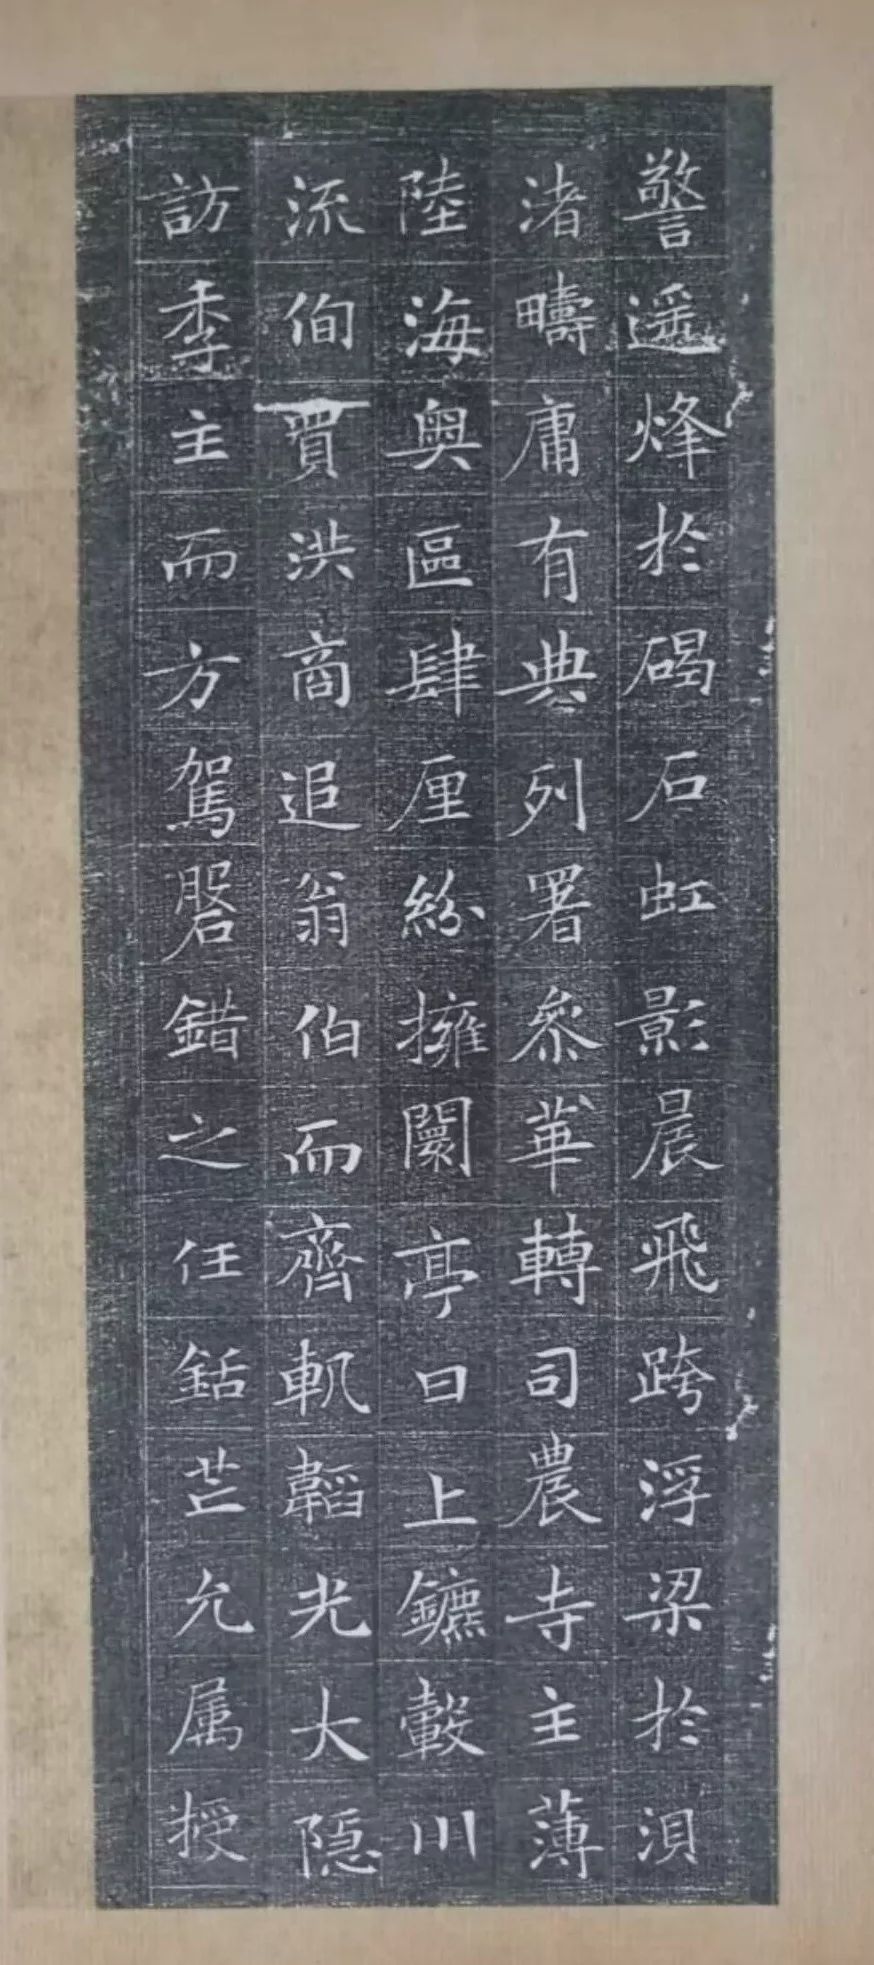 警遥烽於碣石虹影晨飛跨浮梁於浿
渚疇庸有典列署叅華轉司農寺主薄
陸海奥區肆厘紛擁闤亭日上鑣轂川
流伺買洪商追翁伯而齊軌韜光大隐
訪季主而方駕磐錯之任銛芒允属授